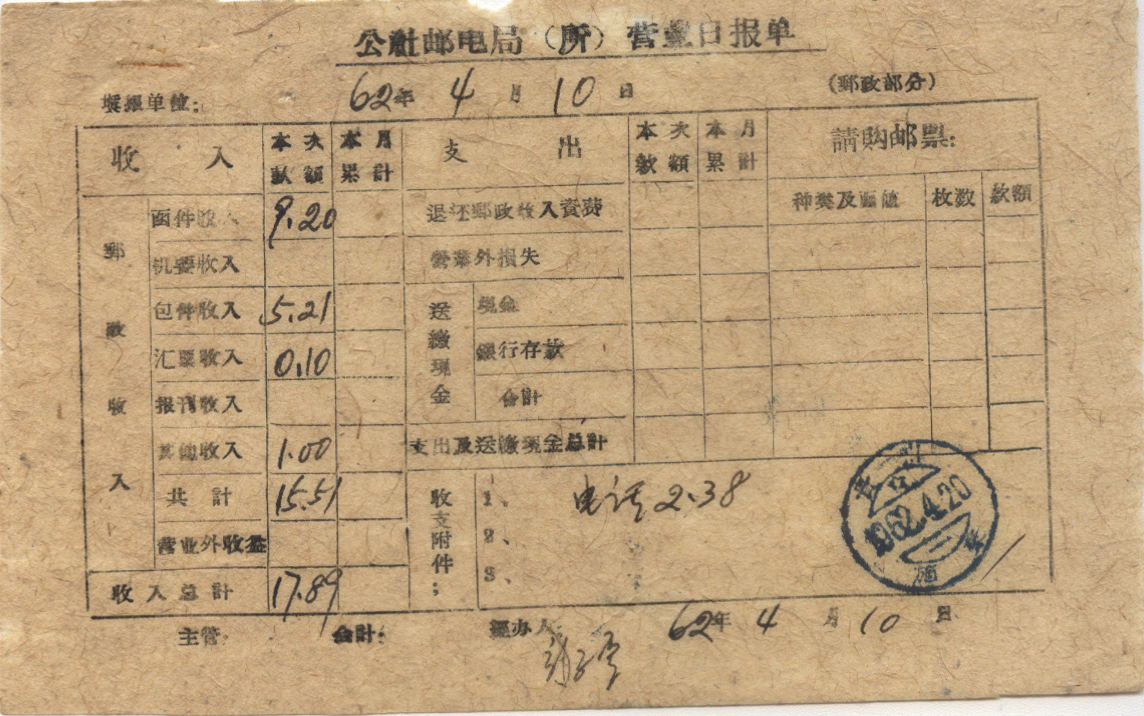 公社邮电局（所）营业日报单
填报单位：
62年 4 月 10 日
（郵政部分）
收 入 本次款额 本月累計 支 出 本次款額 本月累計 請购邮票：
种类及面值 枚数 款額
郵政收入
函件收入 9.20 退还郵政收入資费
机要收入 营業外損失
包件收入 5.21 送缴现金 現金
汇票收入 0.10 銀行存款
报刊收入 合計
其他收入 1.00 支出及送缴現金总計
共計 15.51 收支附件： 1、 电话2.38
2、
营业外收益
3、
收入总計 17.89
1962.4.20
主管： 会計： 經办人
62年 4 月 10 日